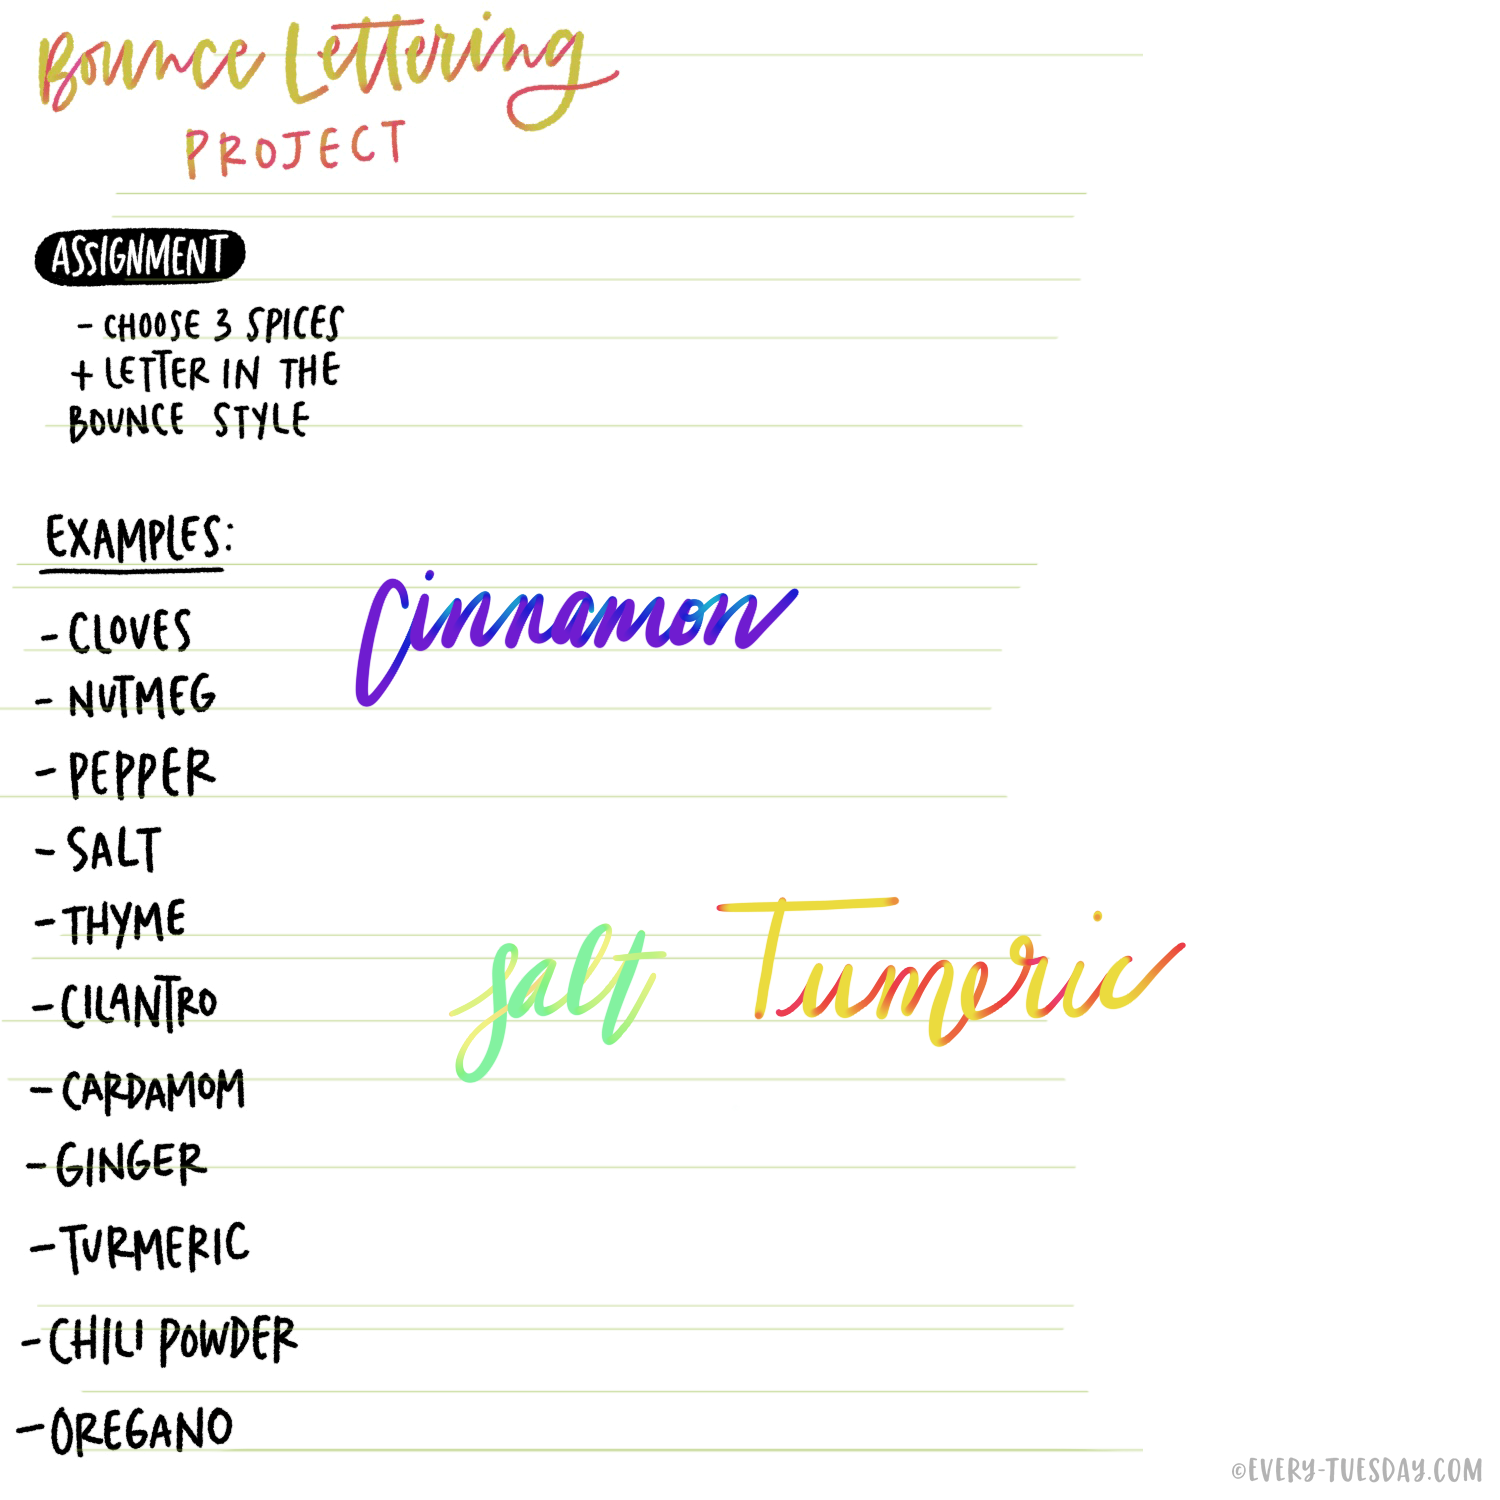 Bounce Lettering
PROJECT
ASSIGNMENT
- CHOOSE 3 SPICES
+ LETTER IN THE
BOUNCE STYLE
EXAMPLES:
- CLOVES
cinnamon
- NUTMEG
- PEPPER
- SALT
- THYME
salt Tumeric
- CILANTRO
- CARDAMOM
- GINGER
- TURMERIC
- CHILI POWDER
- OREGANO
©EVERY-TUESDAY.COM